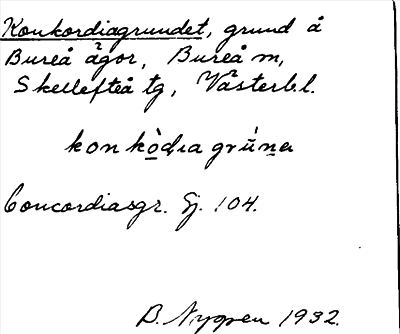 Konkordiagrundet, grund å
Bureå ägor, Bureå m,
Skellefteå tg, Västerbl.
konkòdıa grúnəı
Concordiasgr. Gj. 104.
B. Nygren 1932.